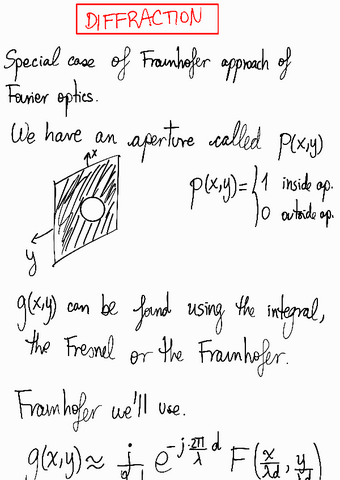 DIFFRACTION
Special case of Fraunhofer approach of
Fourier optics.
We have an aperture called p(x,y)
x
p(x,y)= { 1 inside ap.
0 outside ap.
y
g(x,y) can be found using the integral,
the Fresnel or the Fraunhofer.
Fraunhofer we'll use.
g(x,y) ≈ j/ e^{-j 2π/λ d} F(x/λd, y/λd)